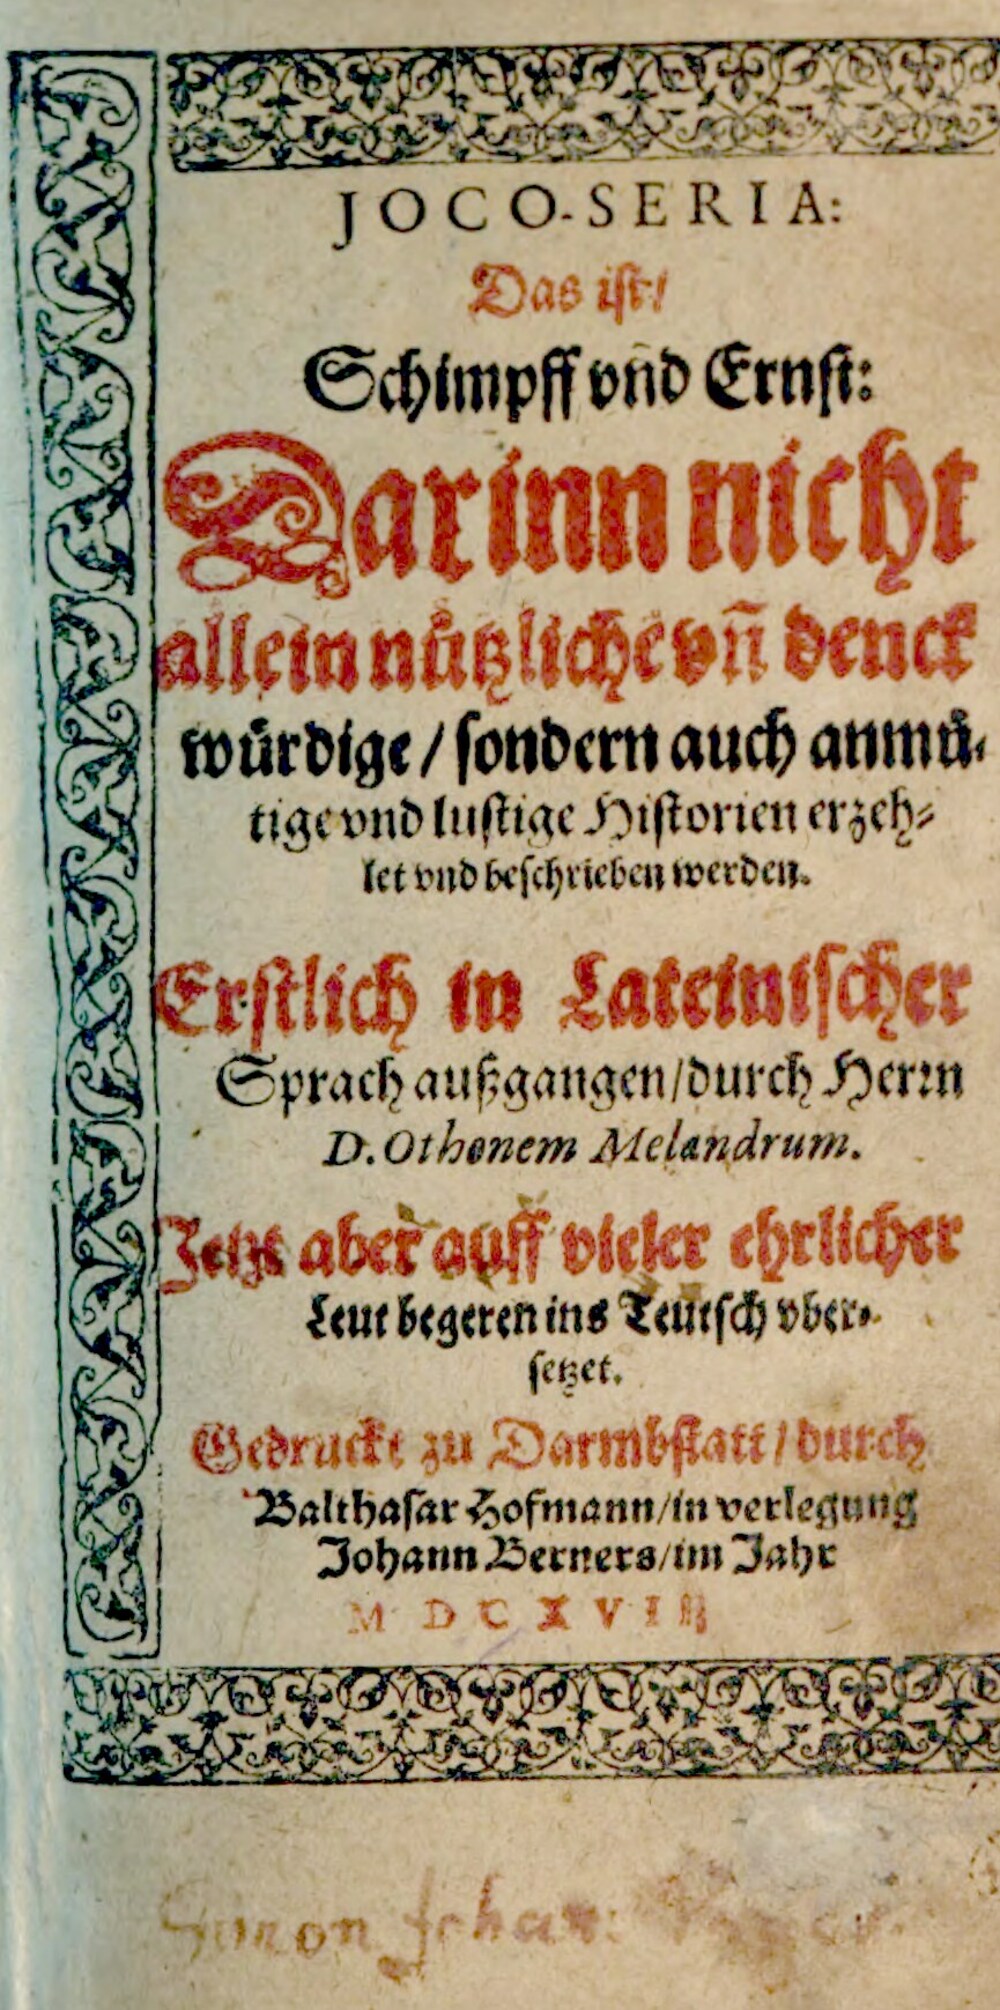 JOCO-SERIA:
Das iſt/
Schimpff vñd Ernſt:
Darinn nicht
allein nuͤtzliche vñ denck
wuͤrdige / ſondern auch anmuͤ-
tige vnd luſtige Hiſtorien erzeh-
let vnd beſchrieben werden.
Erſtlich in Lateiniſcher
Sprach außgangen/durch Herrn
D. Othonem Melandrum.
Jetzt aber auff vieler ehrlicher
Leut begeren ins Teutſch vber-
ſetzet.
Gedruckt zu Darmbſtatt/durch
Balthaſar Hofmann/in verlegung
Johann Berners/im Jahr
M DC XVII
Johan: